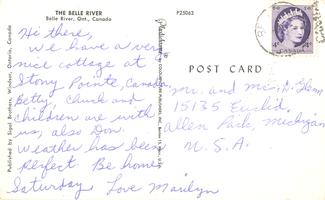 THE BELLE RIVER
Belle River, Ont., Canada
P25063
Hi there,
We have a very
nice cottage at
Stony Pointe, Canada
Betty, Chuck and
children are with
us, also Don.
Weather has been
perfect. Be home
Saturday Love Marilyn
Published by Sigal Brothers, Windsor, Ontario, Canada
POST CARD
CANADA
4
Mr. and Mrs. N. Glenn
15135 Euclid,
Allen Park, Michigan
U.S.A.